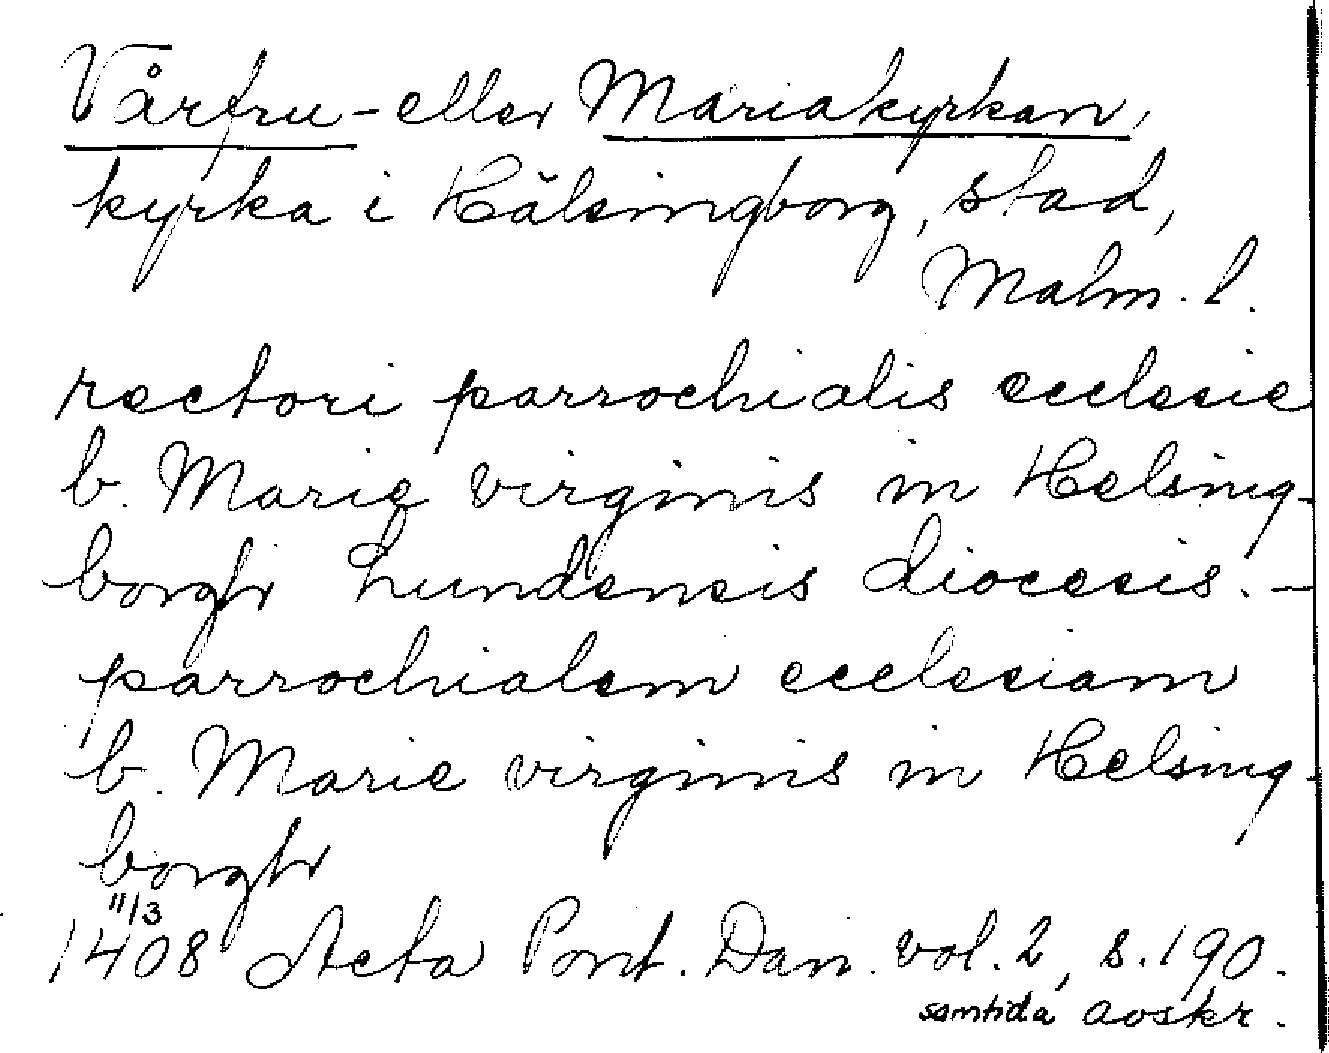 Vårfru- eller Mariakyrkan,
kyrka i Hälsingborg, stad,
Malm. l.
rectori parrochialis ecclesie
b. Marie virginis in Helsing-
borgh Lundensis diocesis. -
parrochialem ecclesiam
b. Marie virginis in Helsing-
borgh
11/3
1408 Acta Pont. Dan. vol. 2, s. 190.
samtida avskr.